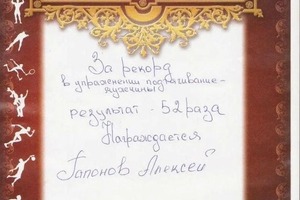 За рекорд
в упражнении подтягивание-
мужчины
результат - 52 раза
Награждается
Гапонов Алексей